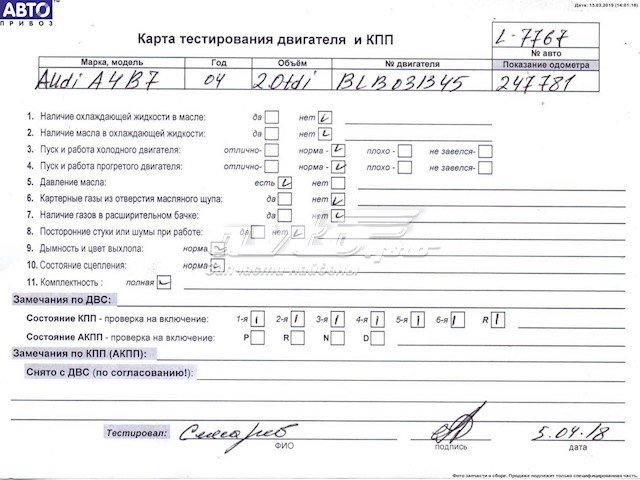 АВТО
ПРИВОЗ
Дата: 15.03.2018 (14:01:16)
Карта тестирования двигателя и КПП
L-7767
№ авто
Марка, модель Год Объём № двигателя Показание одометра
Audi A4B7 04 2.0tdi BLB031345 247781
1. Наличие охлаждающей жидкости в масле: да нет
2. Наличие масла в охлаждающей жидкости: да нет
3. Пуск и работа холодного двигателя: отлично- норма - плохо - не завелся-
4. Пуск и работа прогретого двигателя: отлично- норма - плохо - не завелся-
5. Давление масла: есть нет
6. Картерные газы из отверстия масляного щупа: да нет
7. Наличие газов в расширительном бачке: да нет
8. Посторонние стуки или шумы при работе: да нет
9. Дымность и цвет выхлопа: норма
10. Состояние сцепления: норма-
11. Комплектность : полная
Запчасти найдены!
Замечания по ДВС:
Состояние КПП - проверка на включение: 1-я 2-я 3-я 4-я 5-я 6-я R
Состояние АКПП - проверка на включение: P R N D
Замечания по КПП (АКПП):
Снято с ДВС (по согласованию!):
Тестировал: 5.04.18
ФИО подпись дата
Фото запчасти в сборе. Продаже подлежит только специфицированная часть.